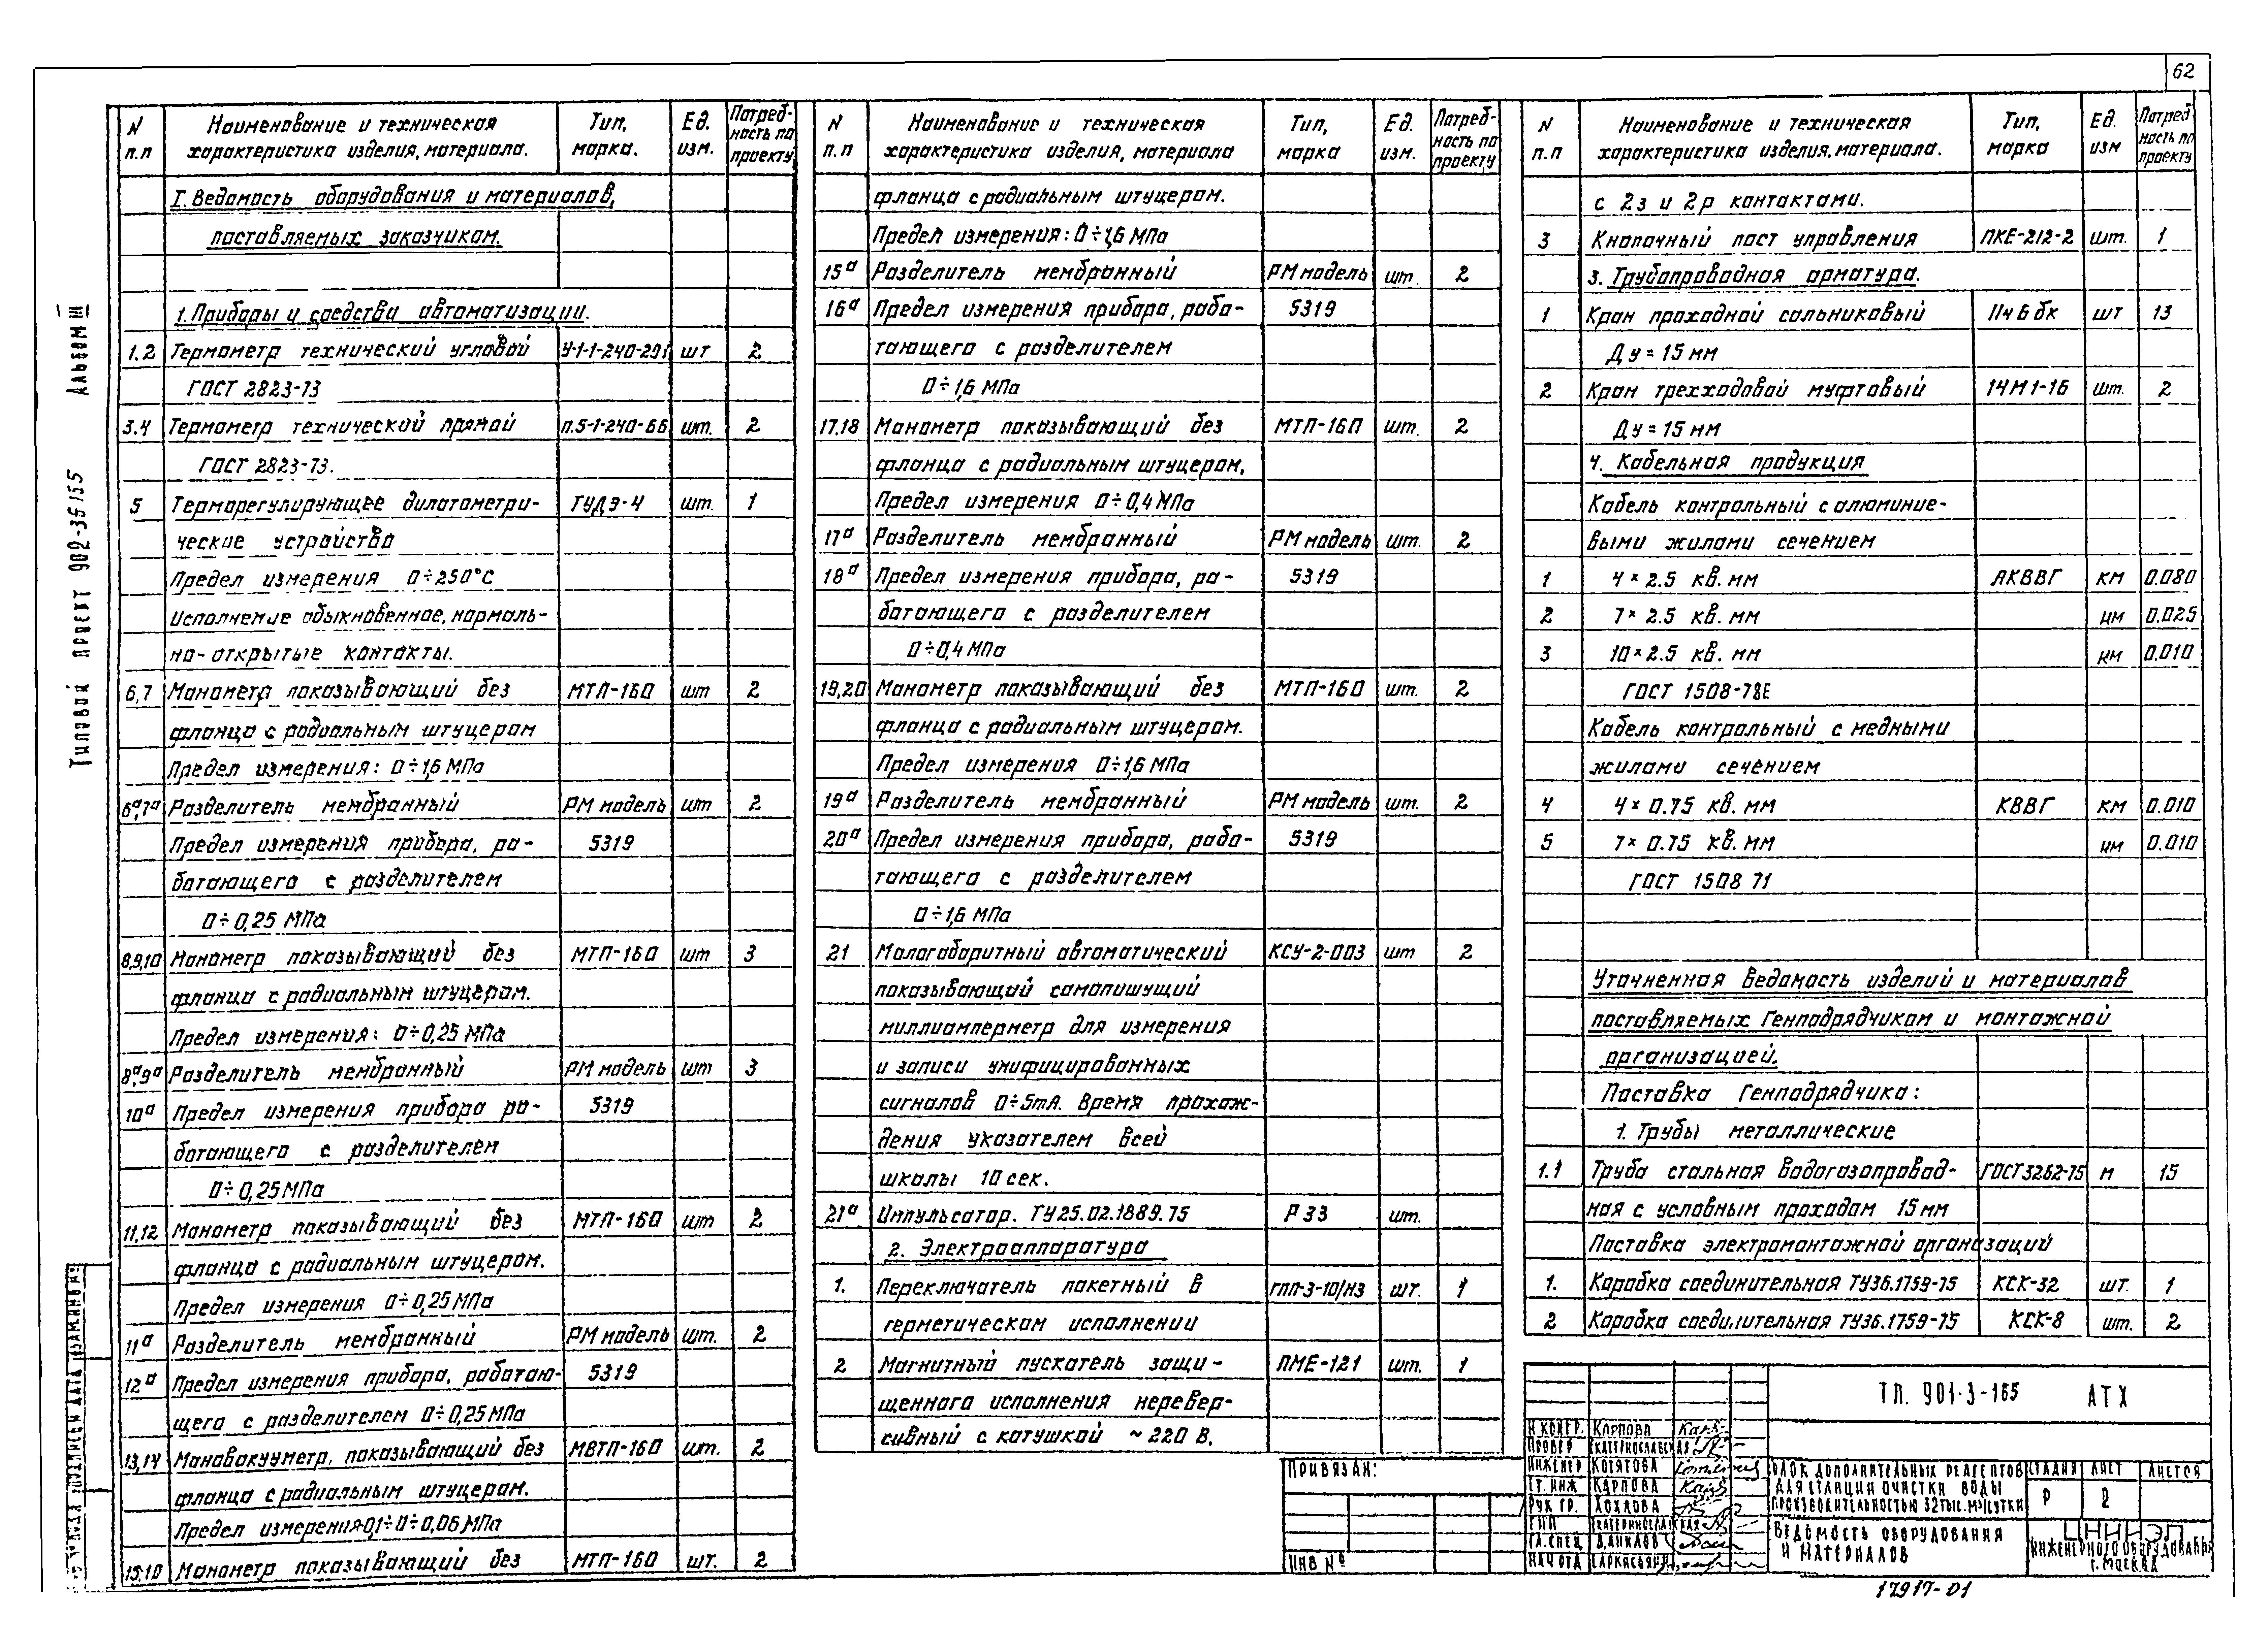 62
Альбом III
Типовой проект 902-36155
N п.п Наименование и техническая характеристика изделия, материала. Тип, марка. Ед. изм. Потреб-ность по проекту
I. Ведомость оборудования и материалов,
поставляемых заказчиком.
1. Приборы и средства автоматизации.
1.2 Термометр технический угловой У-1-1-240-291 шт 2
ГОСТ 2823-73
3.4 Термометр технический прямой п.5-1-240-66 шт. 2
ГОСТ 2823-73.
5 Терморегулирующее дилатометри- ТУДЭ-4 шт. 1
ческие устройства
Предел измерения 0÷250°С
Исполнение обыкновенное, нормаль-
но-открытые контакты.
6,7 Манометр показывающий без МТП-160 шт 2
фланца с радиальным штуцером
Предел измерения: 0÷1,6 МПа
6а,7а Разделитель мембранный РМ модель шт 2
Предел измерения прибора, ра- 5319
ботающего с разделителем
0÷0,25 МПа
8,9,10 Манометр показывающий без МТП-160 шт 3
фланца с радиальным штуцером.
Предел измерения: 0÷0,25 МПа
8а,9а Разделитель мембранный РМ модель шт 3
10а Предел измерения прибора ра- 5319
ботающего с разделителем
0÷0,25 МПа
11,12 Манометр показывающий без МТП-160 шт 2
фланца с радиальным штуцером.
Предел измерения 0÷0,25 МПа
11а Разделитель мембранный РМ модель шт. 2
12а Предел измерения прибора, работаю- 5319
щего с разделителем 0÷0,25 МПа
13,14 Мановакууметр, показывающий без МВТП-160 шт. 2
фланца с радиальным штуцером.
Предел измерения-0,1÷0÷0,06 МПа
Манометр показывающий без МТП-160 шт. 2
N п.п Наименование и техническая характеристика изделия, материала Тип, марка Ед. изм. Потреб-ность по проекту
фланца с радиальным штуцером.
Предел измерения: 0÷1,6 МПа
15а Разделитель мембранный РМ модель шт. 2
16а Предел измерения прибора, рабо- 5319
тающего с разделителем
0÷1,6 МПа
17.18 Манометр показывающий без МТП-160 шт. 2
фланца с радиальным штуцером,
Предел измерения 0÷0,4 МПа
17а Разделитель мембранный РМ модель шт. 2
18а Предел измерения прибора, ра- 5319
ботающего с разделителем
0÷0,4 МПа
19,20 Манометр показывающий без МТП-160 шт. 2
фланца с радиальным штуцером.
Предел измерения 0÷1,6 МПа
19а Разделитель мембранный РМ модель шт. 2
20а Предел измерения прибора, рабо- 5319
тающего с разделителем
0÷1,6 МПа
21 Малогабаритный автоматический КСУ-2-003 шт 2
показывающий самопишущий
миллиамперметр для измерения
и записи унифицированных
сигналов 0÷5mA. Время прохож-
дения указателем всей
шкалы 10 сек.
21а Импульсатор. ТУ25.02.1889.75 Р 33 шт.
2. Электроаппаратура
1. Переключатель пакетный в ГПП-3-10/Н3 шт. 1
герметическом исполнении
2 Магнитный пускатель защи- ПМЕ-121 шт. 1
щенного исполнения неревер-
сивный с катушкой ~220 В.
N п.п Наименование и техническая характеристика изделия, материала. Тип, марка Ед. изм Потреб ность по проекту
с 2з и 2р контактами.
3 Кнопочный пост управления ПКЕ-212-2 шт. 1
3. Трубопроводная арматура.
1 Кран проходной сальниковый 11ч6бк шт 13
Ду=15 мм
2 Кран трехходовой муфтовый 14М1-16 шт. 2
Ду=15 мм
4. Кабельная продукция
Кабель контрольный с алюминие-
выми жилами сечением
1 4×2.5 кв. мм АКВВГ км 0.080
2 7×2.5 кв. мм км 0.025
3 10×2.5 кв. мм км 0.010
ГОСТ 1508-78Е
Кабель контрольный с медными
жилами сечением
4 4×0.75 кв. мм КВВГ км 0.010
5 7×0.75 кв. мм км 0.010
ГОСТ 1508 71
Уточненная ведомость изделий и материалов
поставляемых Генподрядчиком и монтажной
организацией.
Поставка Генподрядчика:
1. Трубы металлические
1.1 Труба стальная водогазопровод- ГОСТ3262-75 м 15
ная с условным проходом 15 мм
Поставка электромонтажной организаций
1. Коробка соединительная ТУ36.1759-75 КСК-32 шт. 1
2 Коробка соединительная ТУ36.1759-75 КСК-8 шт. 2
ТП. 901-3-165 АТХ
Привязан:
ИНВ №
Н КОНТР. КАРПОВА
ПРОВЕР ЕКАТЕРИНОСЛАВСКАЯ
ИНЖЕНЕР КОТЯТОВА
СТ. ИНЖ КАРПОВА
РУК ГР. ХОХЛОВА
ГИП ЕКАТЕРИНОСЛАВСКАЯ
ГЛ. СПЕЦ ДАНИЛОВ
НАЧ ОТД
БЛОК ДОПОЛНИТЕЛЬНЫХ РЕАГЕНТОВ
ДЛЯ СТАНЦИИ ОЧИСТКИ ВОДЫ
ПРОИЗВОДИТЕЛЬНОСТЬЮ 32 ТЫС. М³/СУТКИ
СТАДИЯ ЛИСТ ЛИСТОВ
Р 2
ВЕДОМОСТЬ ОБОРУДОВАНИЯ
И МАТЕРИАЛОВ
ЦНИИЭП
ИНЖЕНЕРНОГО ОБОРУДОВАНИЯ
г. МОСКВА
17917-01